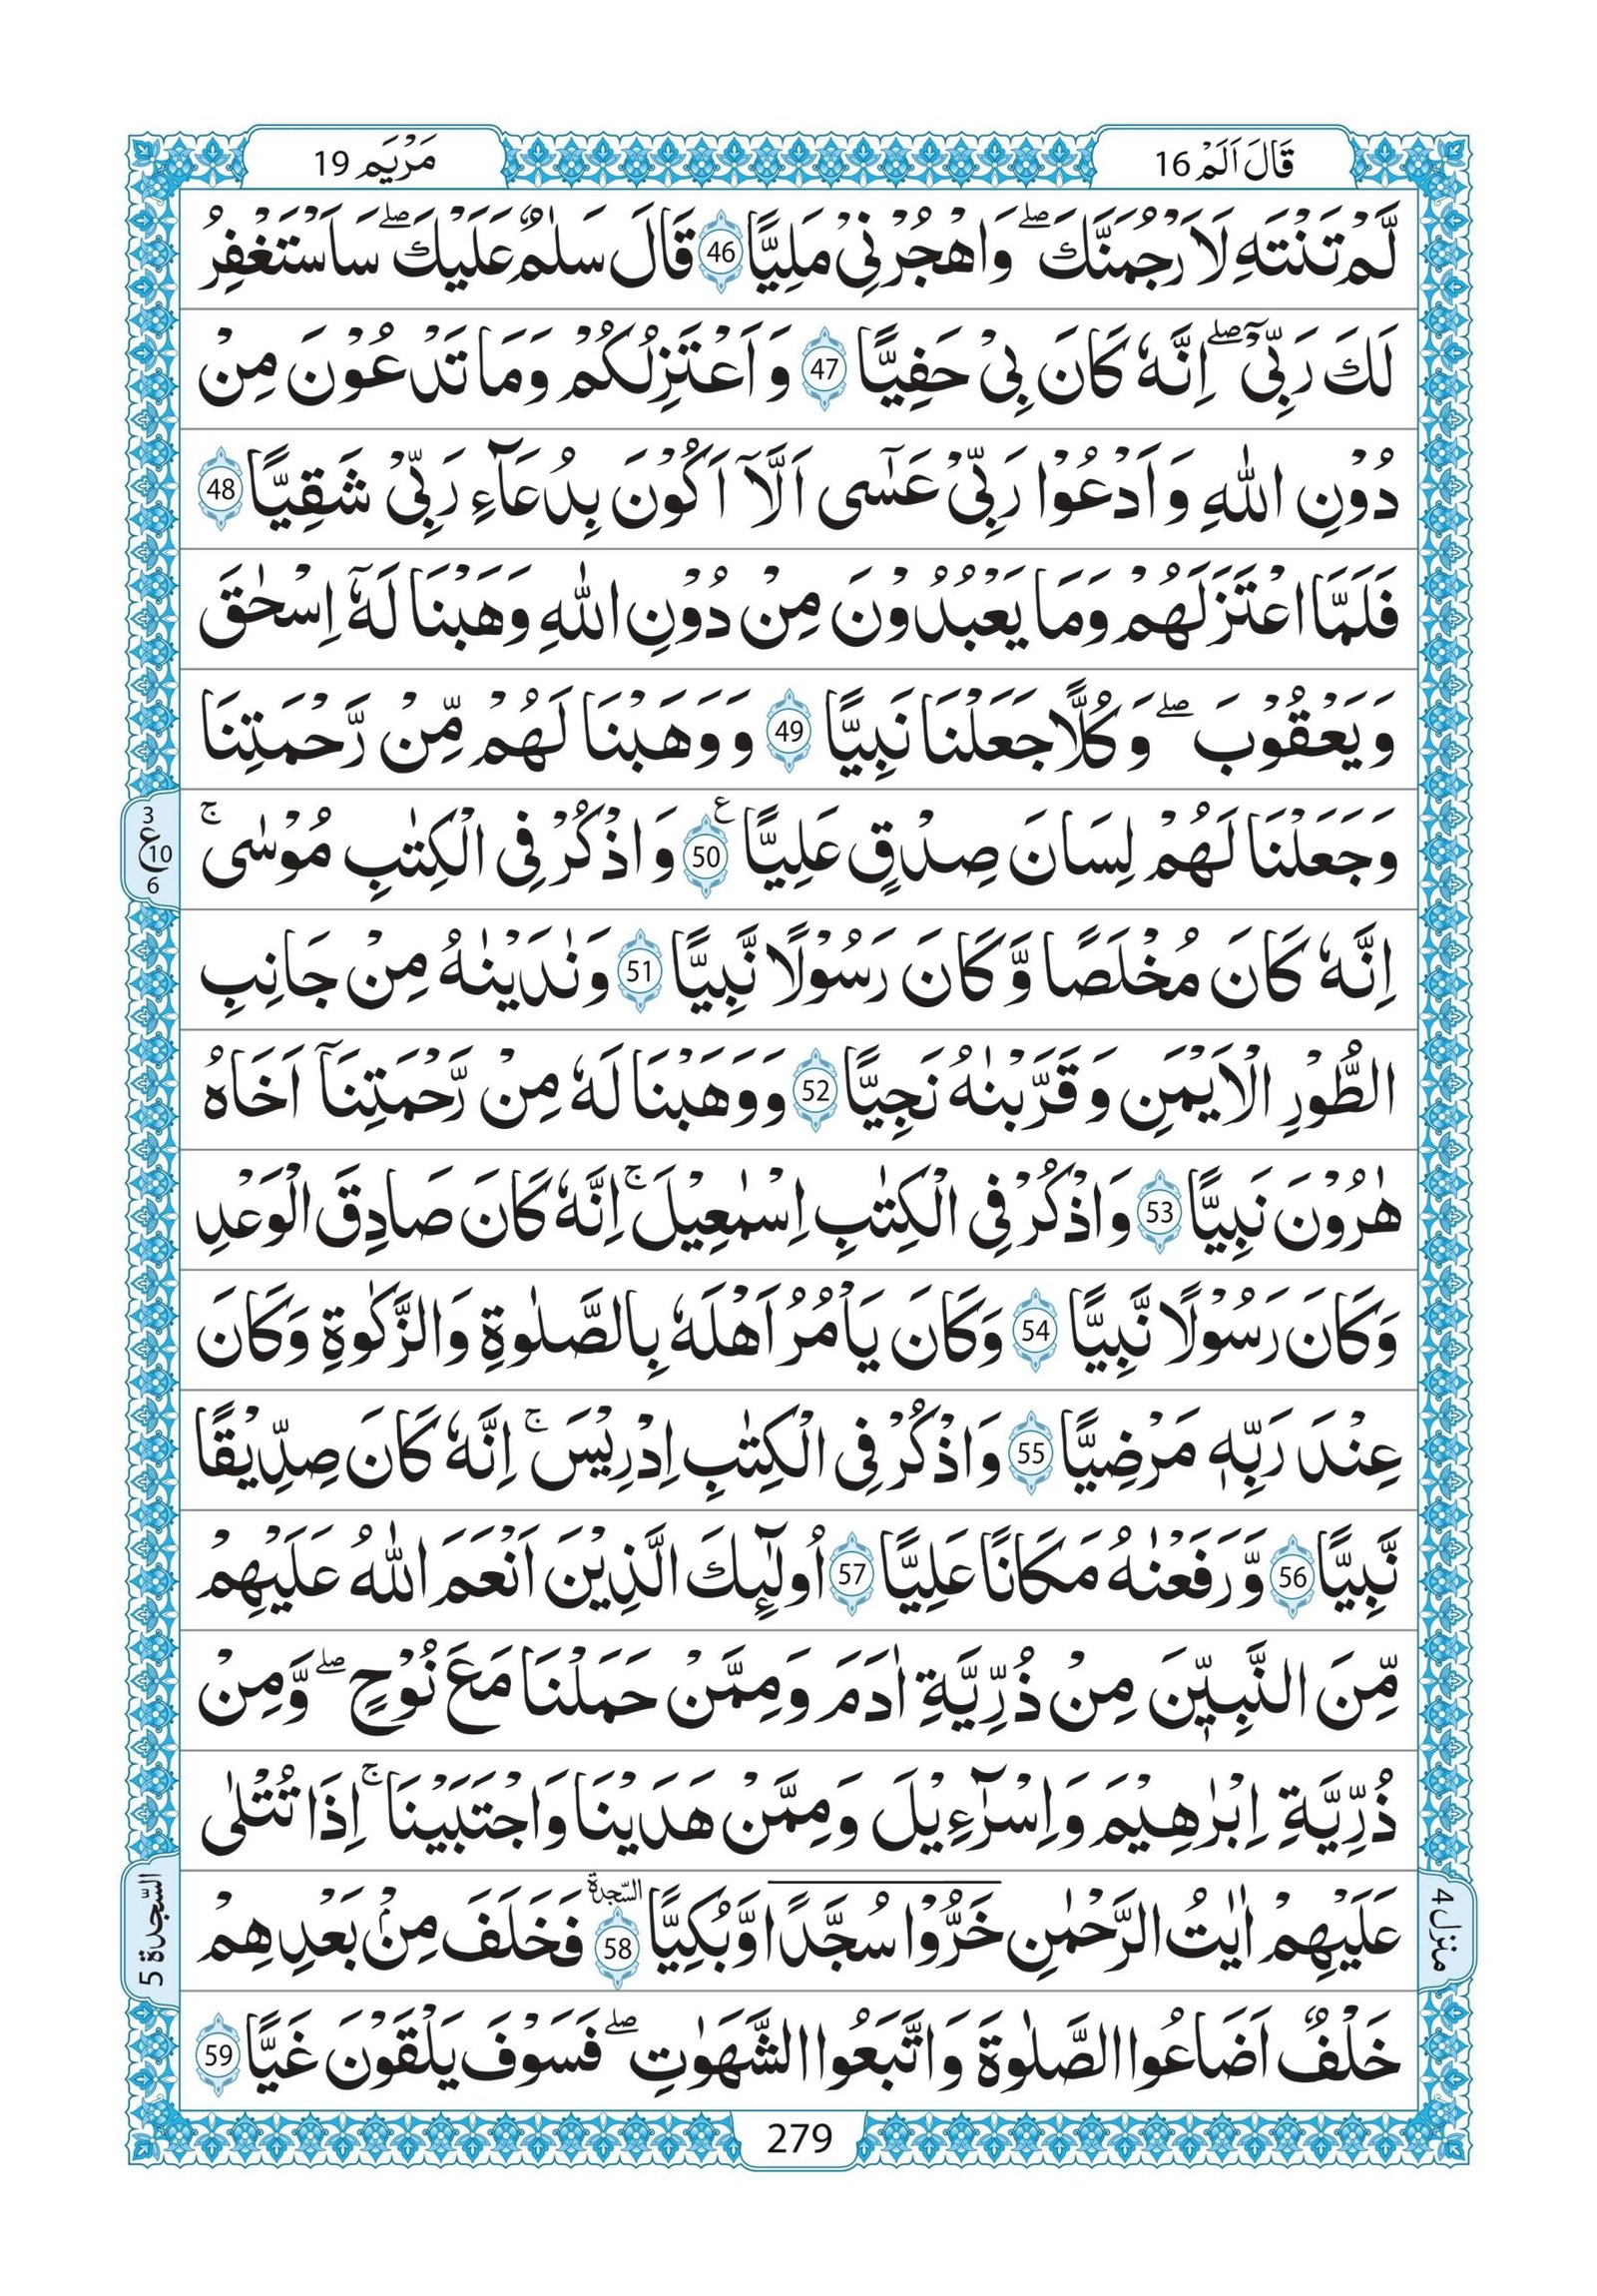 قَالَ اَلَمْ 16
مَرْيَم 19
لَّمْ تَنْتَهِ لَاَرْجُمَنَّكَ ۖ وَاهْجُرْنِيْ مَلِيًّا 46 قَالَ سَلٰمٌ عَلَيْكَ ۖ سَاَسْتَغْفِرُ
لَكَ رَبِّيْٓ ۖ اِنَّهٗ كَانَ بِيْ حَفِيًّا 47 وَاَعْتَزِلُكُمْ وَمَا تَدْعُوْنَ مِنْ
دُوْنِ اللّٰهِ وَاَدْعُوْا رَبِّيْ عَسٰٓى اَلَّآ اَكُوْنَ بِدُعَآءِ رَبِّيْ شَقِيًّا 48
فَلَمَّا اعْتَزَلَهُمْ وَمَا يَعْبُدُوْنَ مِنْ دُوْنِ اللّٰهِ وَهَبْنَا لَهٗٓ اِسْحٰقَ
وَيَعْقُوْبَ ۖ وَكُلًّا جَعَلْنَا نَبِيًّا 49 وَوَهَبْنَا لَهُمْ مِّنْ رَّحْمَتِنَا
وَجَعَلْنَا لَهُمْ لِسَانَ صِدْقٍ عَلِيًّا ع 50 وَاذْكُرْ فِى الْكِتٰبِ مُوْسٰٓى ۚ
3 ع 10 6
اِنَّهٗ كَانَ مُخْلَصًا وَّكَانَ رَسُوْلًا نَّبِيًّا 51 وَنٰدَيْنٰهُ مِنْ جَانِبِ
الطُّوْرِ الْاَيْمَنِ وَقَرَّبْنٰهُ نَجِيًّا 52 وَوَهَبْنَا لَهٗ مِنْ رَّحْمَتِنَآ اَخَاهُ
هٰرُوْنَ نَبِيًّا 53 وَاذْكُرْ فِى الْكِتٰبِ اِسْمٰعِيْلَ ۚ اِنَّهٗ كَانَ صَادِقَ الْوَعْدِ
وَكَانَ رَسُوْلًا نَّبِيًّا 54 وَكَانَ يَاْمُرُ اَهْلَهٗ بِالصَّلٰوةِ وَالزَّكٰوةِ وَكَانَ
عِنْدَ رَبِّهٖ مَرْضِيًّا 55 وَاذْكُرْ فِى الْكِتٰبِ اِدْرِيْسَ ۚ اِنَّهٗ كَانَ صِدِّيْقًا
نَّبِيًّا 56 وَّرَفَعْنٰهُ مَكَانًا عَلِيًّا 57 اُولٰٓئِكَ الَّذِيْنَ اَنْعَمَ اللّٰهُ عَلَيْهِمْ
مِّنَ النَّبِيّٖنَ مِنْ ذُرِّيَّةِ اٰدَمَ وَمِمَّنْ حَمَلْنَا مَعَ نُوْحٍ ۖ وَّمِنْ
ذُرِّيَّةِ اِبْرٰهِيْمَ وَاِسْرَآءِيْلَ وَمِمَّنْ هَدَيْنَا وَاجْتَبَيْنَا ۚ اِذَا تُتْلٰى
عَلَيْهِمْ اٰيٰتُ الرَّحْمٰنِ خَرُّوْا سُجَّدًا وَّبُكِيًّا السّجدة 58 فَخَلَفَ مِنْۢ بَعْدِهِمْ
منزل 4
السّجدة 5
خَلْفٌ اَضَاعُوا الصَّلٰوةَ وَاتَّبَعُوا الشَّهَوٰتِ ۖ فَسَوْفَ يَلْقَوْنَ غَيًّا 59
279